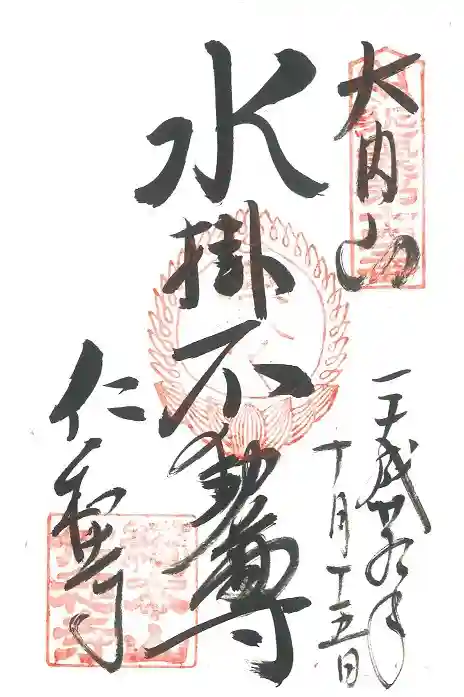 大内山
水掛不動尊
仁和寺
平成廿九年
十月十五日